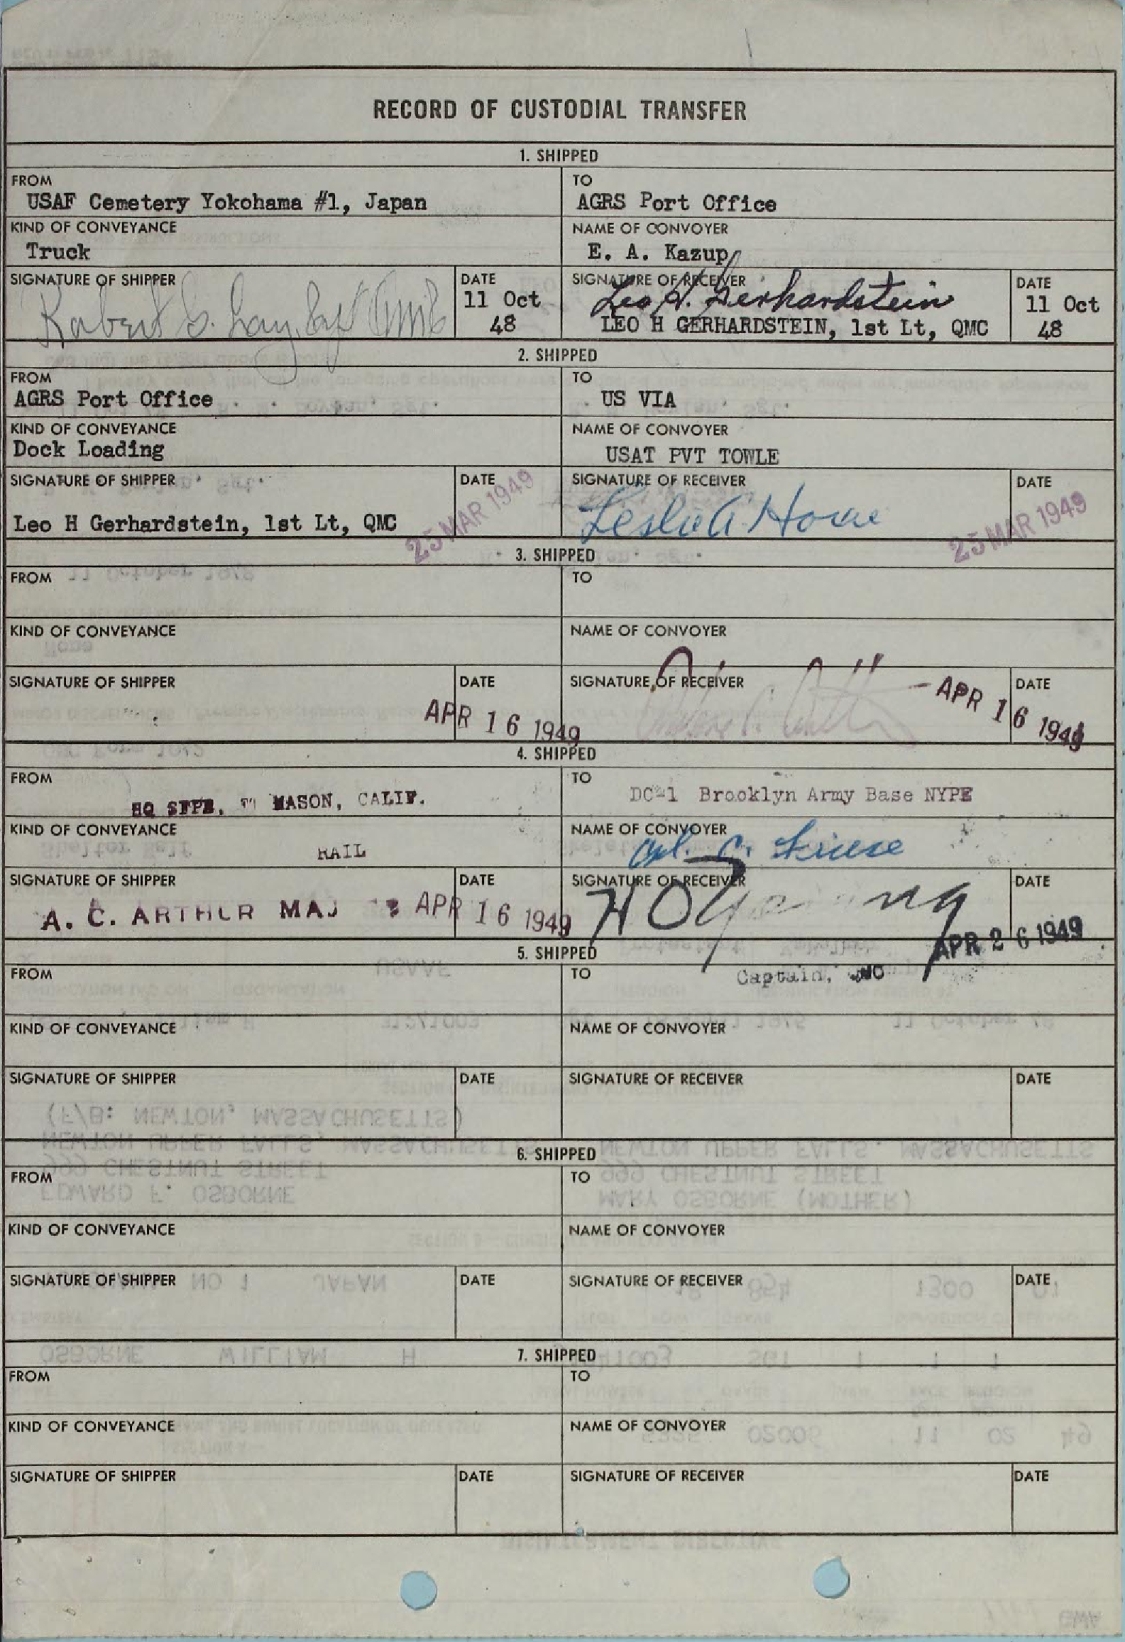 RECORD OF CUSTODIAL TRANSFER
1. SHIPPED
FROM
USAF Cemetery Yokohama #1, Japan
TO
AGRS Port Office
KIND OF CONVEYANCE
Truck
NAME OF CONVOYER
E. A. Kazup
SIGNATURE OF SHIPPER
DATE
11 Oct
48
SIGNATURE OF RECEIVER
Leo H. Gerhardstein
LEO H GERHARDSTEIN, 1st Lt, QMC
DATE
11 Oct
48
2. SHIPPED
FROM
AGRS Port Office
TO
US VIA
KIND OF CONVEYANCE
Dock Loading
NAME OF CONVOYER
USAT PVT TOWLE
SIGNATURE OF SHIPPER
Leo H Gerhardstein, 1st Lt, QMC
DATE
25 MAR 1949
SIGNATURE OF RECEIVER
DATE
25 MAR 1949
3. SHIPPED
FROM
TO
KIND OF CONVEYANCE
NAME OF CONVOYER
SIGNATURE OF SHIPPER
DATE
APR 16 1949
SIGNATURE OF RECEIVER
DATE
APR 16 1949
4. SHIPPED
FROM
HQ SFPE, FT MASON, CALIF.
TO
DC-1 Brooklyn Army Base NYPE
KIND OF CONVEYANCE
RAIL
NAME OF CONVOYER
SIGNATURE OF SHIPPER
A. C. ARTHUR MAJ
DATE
APR 16 1949
SIGNATURE OF RECEIVER
DATE
APR 26 1949
5. SHIPPED
FROM
TO
Captain,
KIND OF CONVEYANCE
NAME OF CONVOYER
SIGNATURE OF SHIPPER
DATE
SIGNATURE OF RECEIVER
DATE
6. SHIPPED
FROM
TO
KIND OF CONVEYANCE
NAME OF CONVOYER
SIGNATURE OF SHIPPER
DATE
SIGNATURE OF RECEIVER
DATE
7. SHIPPED
FROM
TO
KIND OF CONVEYANCE
NAME OF CONVOYER
SIGNATURE OF SHIPPER
DATE
SIGNATURE OF RECEIVER
DATE